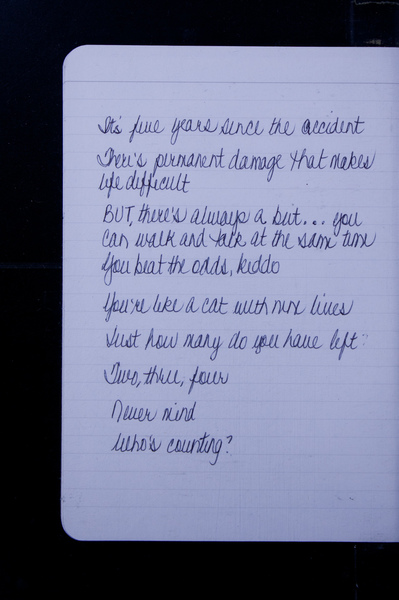 It's five years since the accident
There's permanent damage that makes
life difficult
BUT, there's always a but... you
can walk and talk at the same time
You beat the odds, kiddo
You're like a cat with nine lives
Just how many do you have left?
Two, three, four
Never mind
Who's counting?